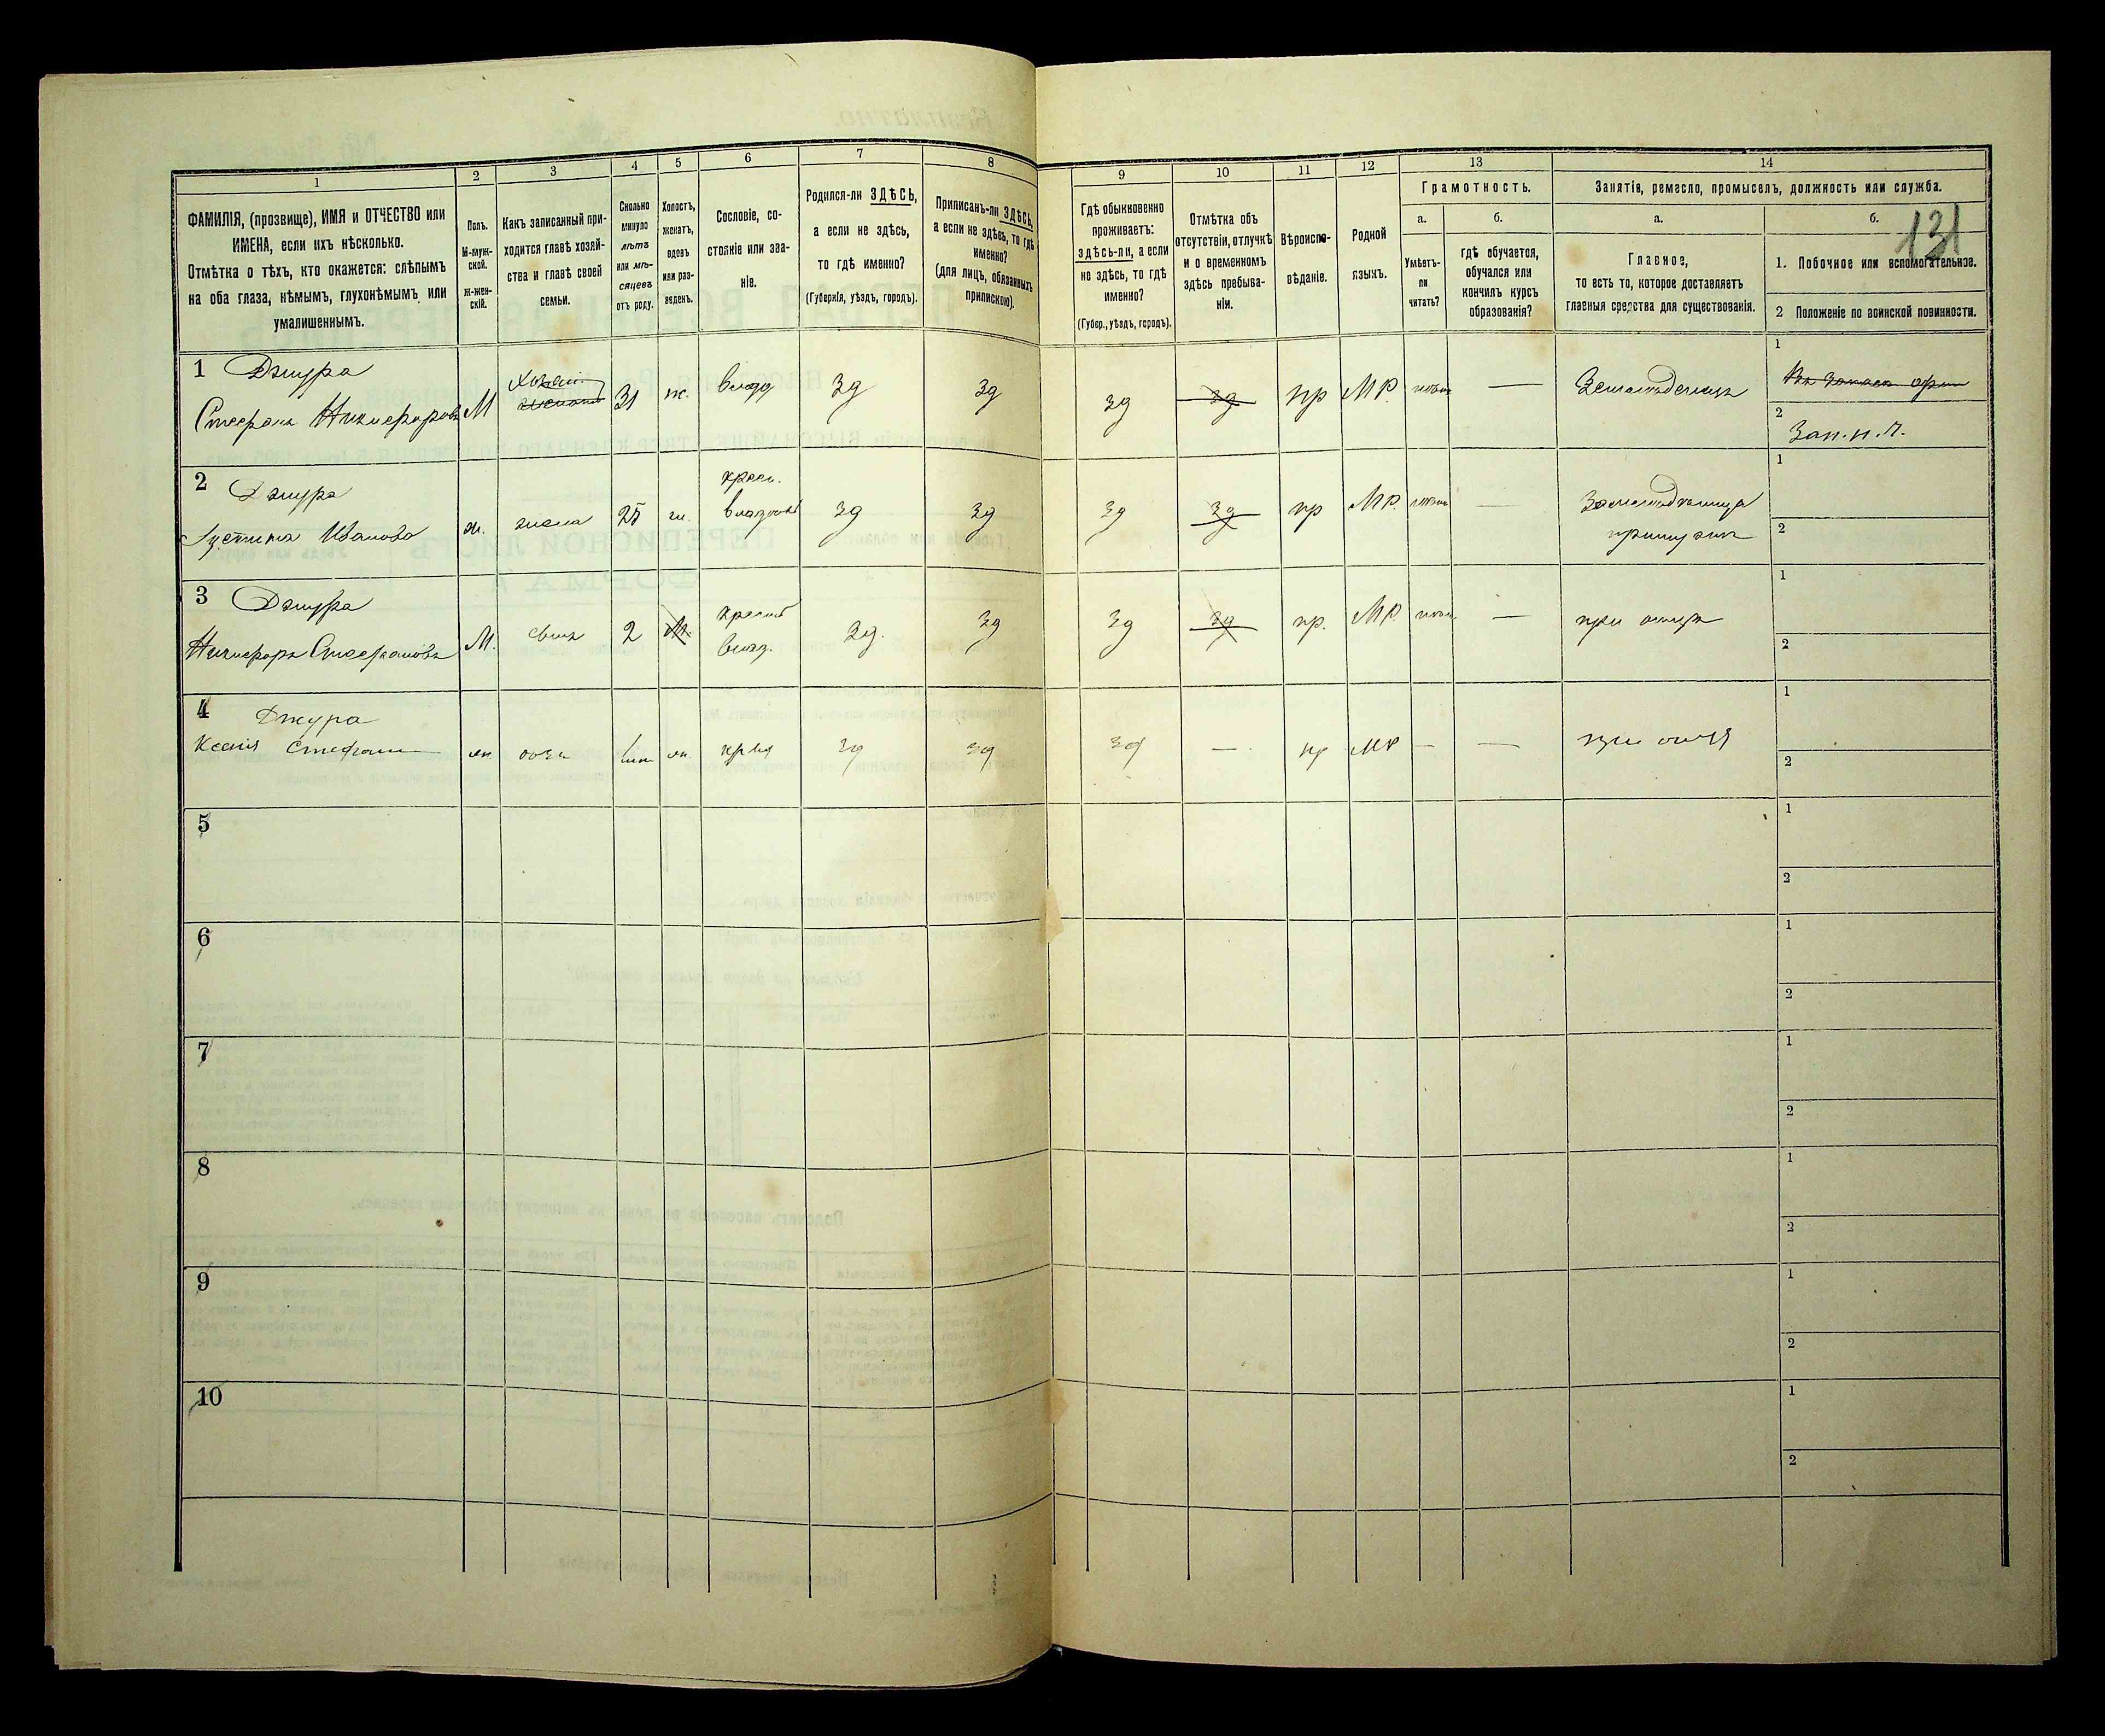 131
1
2
3
4
5
6
7
8
9
10
11
12
13
14
ФАМИЛІЯ, (прозвище), ИМЯ и ОТЧЕСТВО или
ИМЕНА, если ихъ нѣсколько.
Отмѣтка о тѣхъ, кто окажется: слѣпымъ
на оба глаза, нѣмымъ, глухонѣмымъ или
умалишеннымъ.
Полъ.
М-муж-
ской.
Ж-жен-
скій.
Какъ записанный при-
ходится главѣ хозяй-
ства и главѣ своей
семьи.
Сколько
минуло
лѣтъ
или мѣ-
сяцевъ
отъ роду.
Холостъ,
женатъ,
вдовъ
или раз-
веденъ.
Сословіе, со-
стояніе или зва-
ніе.
Родился-ли ЗДѢСЬ,
а если не здѣсь,
то гдѣ именно?
(Губернія, уѣздъ, городъ).
Приписанъ-ли ЗДѢСЬ,
а если не здѣсь, то гдѣ
именно?
(для лицъ, обязанныхъ
припискою).
Гдѣ обыкновенно
проживаетъ:
здѣсь-ли, а если
не здѣсь, то гдѣ
именно?
(Губер., уѣздъ, городъ).
Отмѣтка объ
отсутствіи, отлучкѣ
и о временномъ
здѣсь пребыва-
ніи.
Вѣроиспо-
вѣданіе.
Родной
языкъ.
Грамотность.
а.
Умѣетъ-
ли
читать?
б.
гдѣ обучается,
обучался или
кончилъ курсъ
образованія?
Занятія, ремесло, промыселъ, должность или служба.
а.
Главное,
то есть то, которое доставляетъ
главныя средства для существованія.
б.
1. Побочное или вспомогательное.
2 Положеніе по воинской повинности.
1 Джура
Стефанъ Никифоровъ М Хозяинъ 31 ж. владд зд зд зд зд пр МР. нѣтъ — Земледѣлецъ
1
2
Зап. н. ч.
2 Джура
Іустина Иванова ж. жена 25 ж. крест. зд зд зд зд пр МР. нѣтъ — Земледѣлица
при мужѣ
1
2
3 Джура
Никифоръ Стефановъ М. сынъ 2 крест. влад. зд. зд зд зд пр. МР. нѣтъ — при отцѣ
1
2
4 Джура
Ксенія Стефан жн. дочь зд зд зд — пр МР — — при отцѣ
1
2
5
1
2
6
1
2
7
1
2
8
1
2
9
1
2
10
1
2